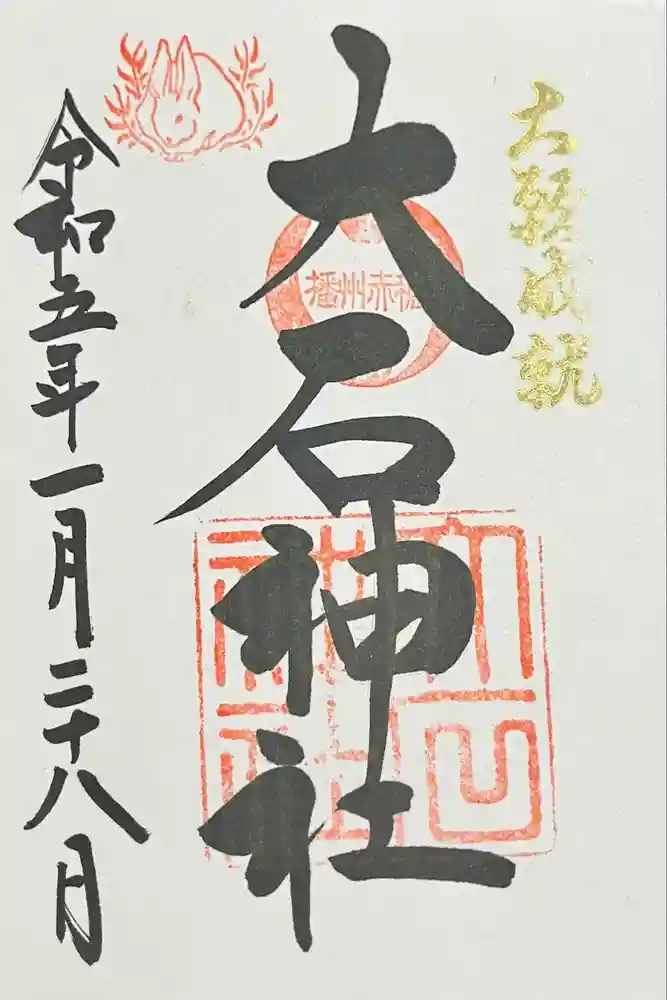 大願成就
大石神社
播州赤穂
令和五年一月二十八日